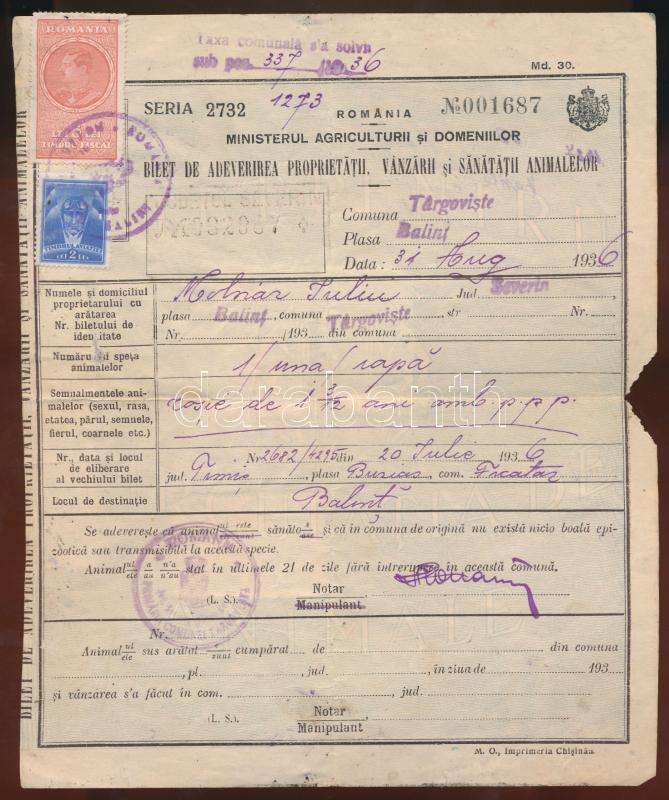 Taxa comunală s'a solvit
sub poz. 337 /1936
Md. 30.
ROMANIA
TIMBRU FISCAL
TIMBRUL AVIAȚIEI
2 LEI
SERIA 2732
1273
ROMÂNIA
№001687
MINISTERUL AGRICULTURII și DOMENIILOR
BILET DE ADEVERIREA PROPRIETĂȚII, VÂNZĂRII și SĂNĂTĂȚII ANIMALELOR
Comuna Târgoviște
Plasa Balinț
Data: 31 Aug 1936
Numele și domiciliul proprietarului cu arătarea Nr. biletului de identitate
Molnár Iuliu Jud. Severin
plasa Balinț, comuna Târgoviște, str Nr.
Nr. /193 din comuna
Numărul și speța animalelor
1/una/ iapă
Semnalmentele animalelor (sexul, rasa, etatea, părul, semnele, fierul, coarnele etc.)
de 1 3/12 ani amb. p.p.p.
Nr., data și locul de eliberare al vechiului bilet
Nr 2682/1295 din 20 Iulie 1936
jud. Timiș, plasa Buziaș, com. Ficatar
Locul de destinație
Balinț
Se adeverește că animalul este sănătos și că în comuna de origină nu există nicio boală epi-
zootică sau transmisibilă la această specie.
Animalul a n'a
ele au n'au stat în ultimele 21 de zile fără întrerupere în această comună.
(L. S.)
Notar
Manipulant
Nr.
Animal ul
ele sus arătat cumpărat de din comuna
, pl. , jud. , în ziua de 193
și vânzarea s'a făcut în com. , jud.
(L. S.)
Notar
Manipulant
M. O., Imprimeria Chișinău.
BILET DE ADEVERIREA PROPRIETĂȚII, VÂNZĂRII și SĂNĂTĂȚII ANIMALELOR
darabanth